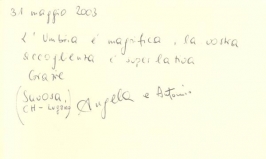 31 maggio 2003
L'Umbria è magnifica, la vostra
accoglienza è superlativa
Grazie
(Svosa,
CH-Lugano) Angela e Antonio